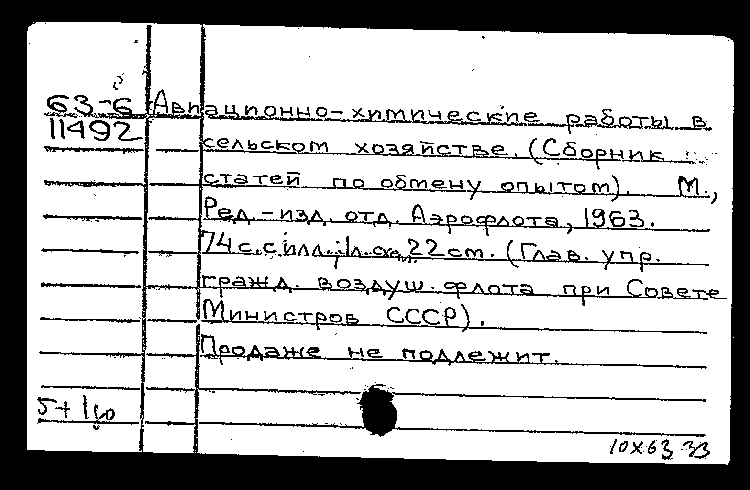 63-6 Авиационно-химические работы в
11492 сельском хозяйстве. (Сборник
статей по обмену опытом). М.,
Ред.-изд. отд. Аэрофлота, 1963.
74 с. с илл.; 22 см. (Глав. упр.
гражд. воздуш. флота при Совете
Министров СССР).
Продаже не подлежит.
5+1
10X63